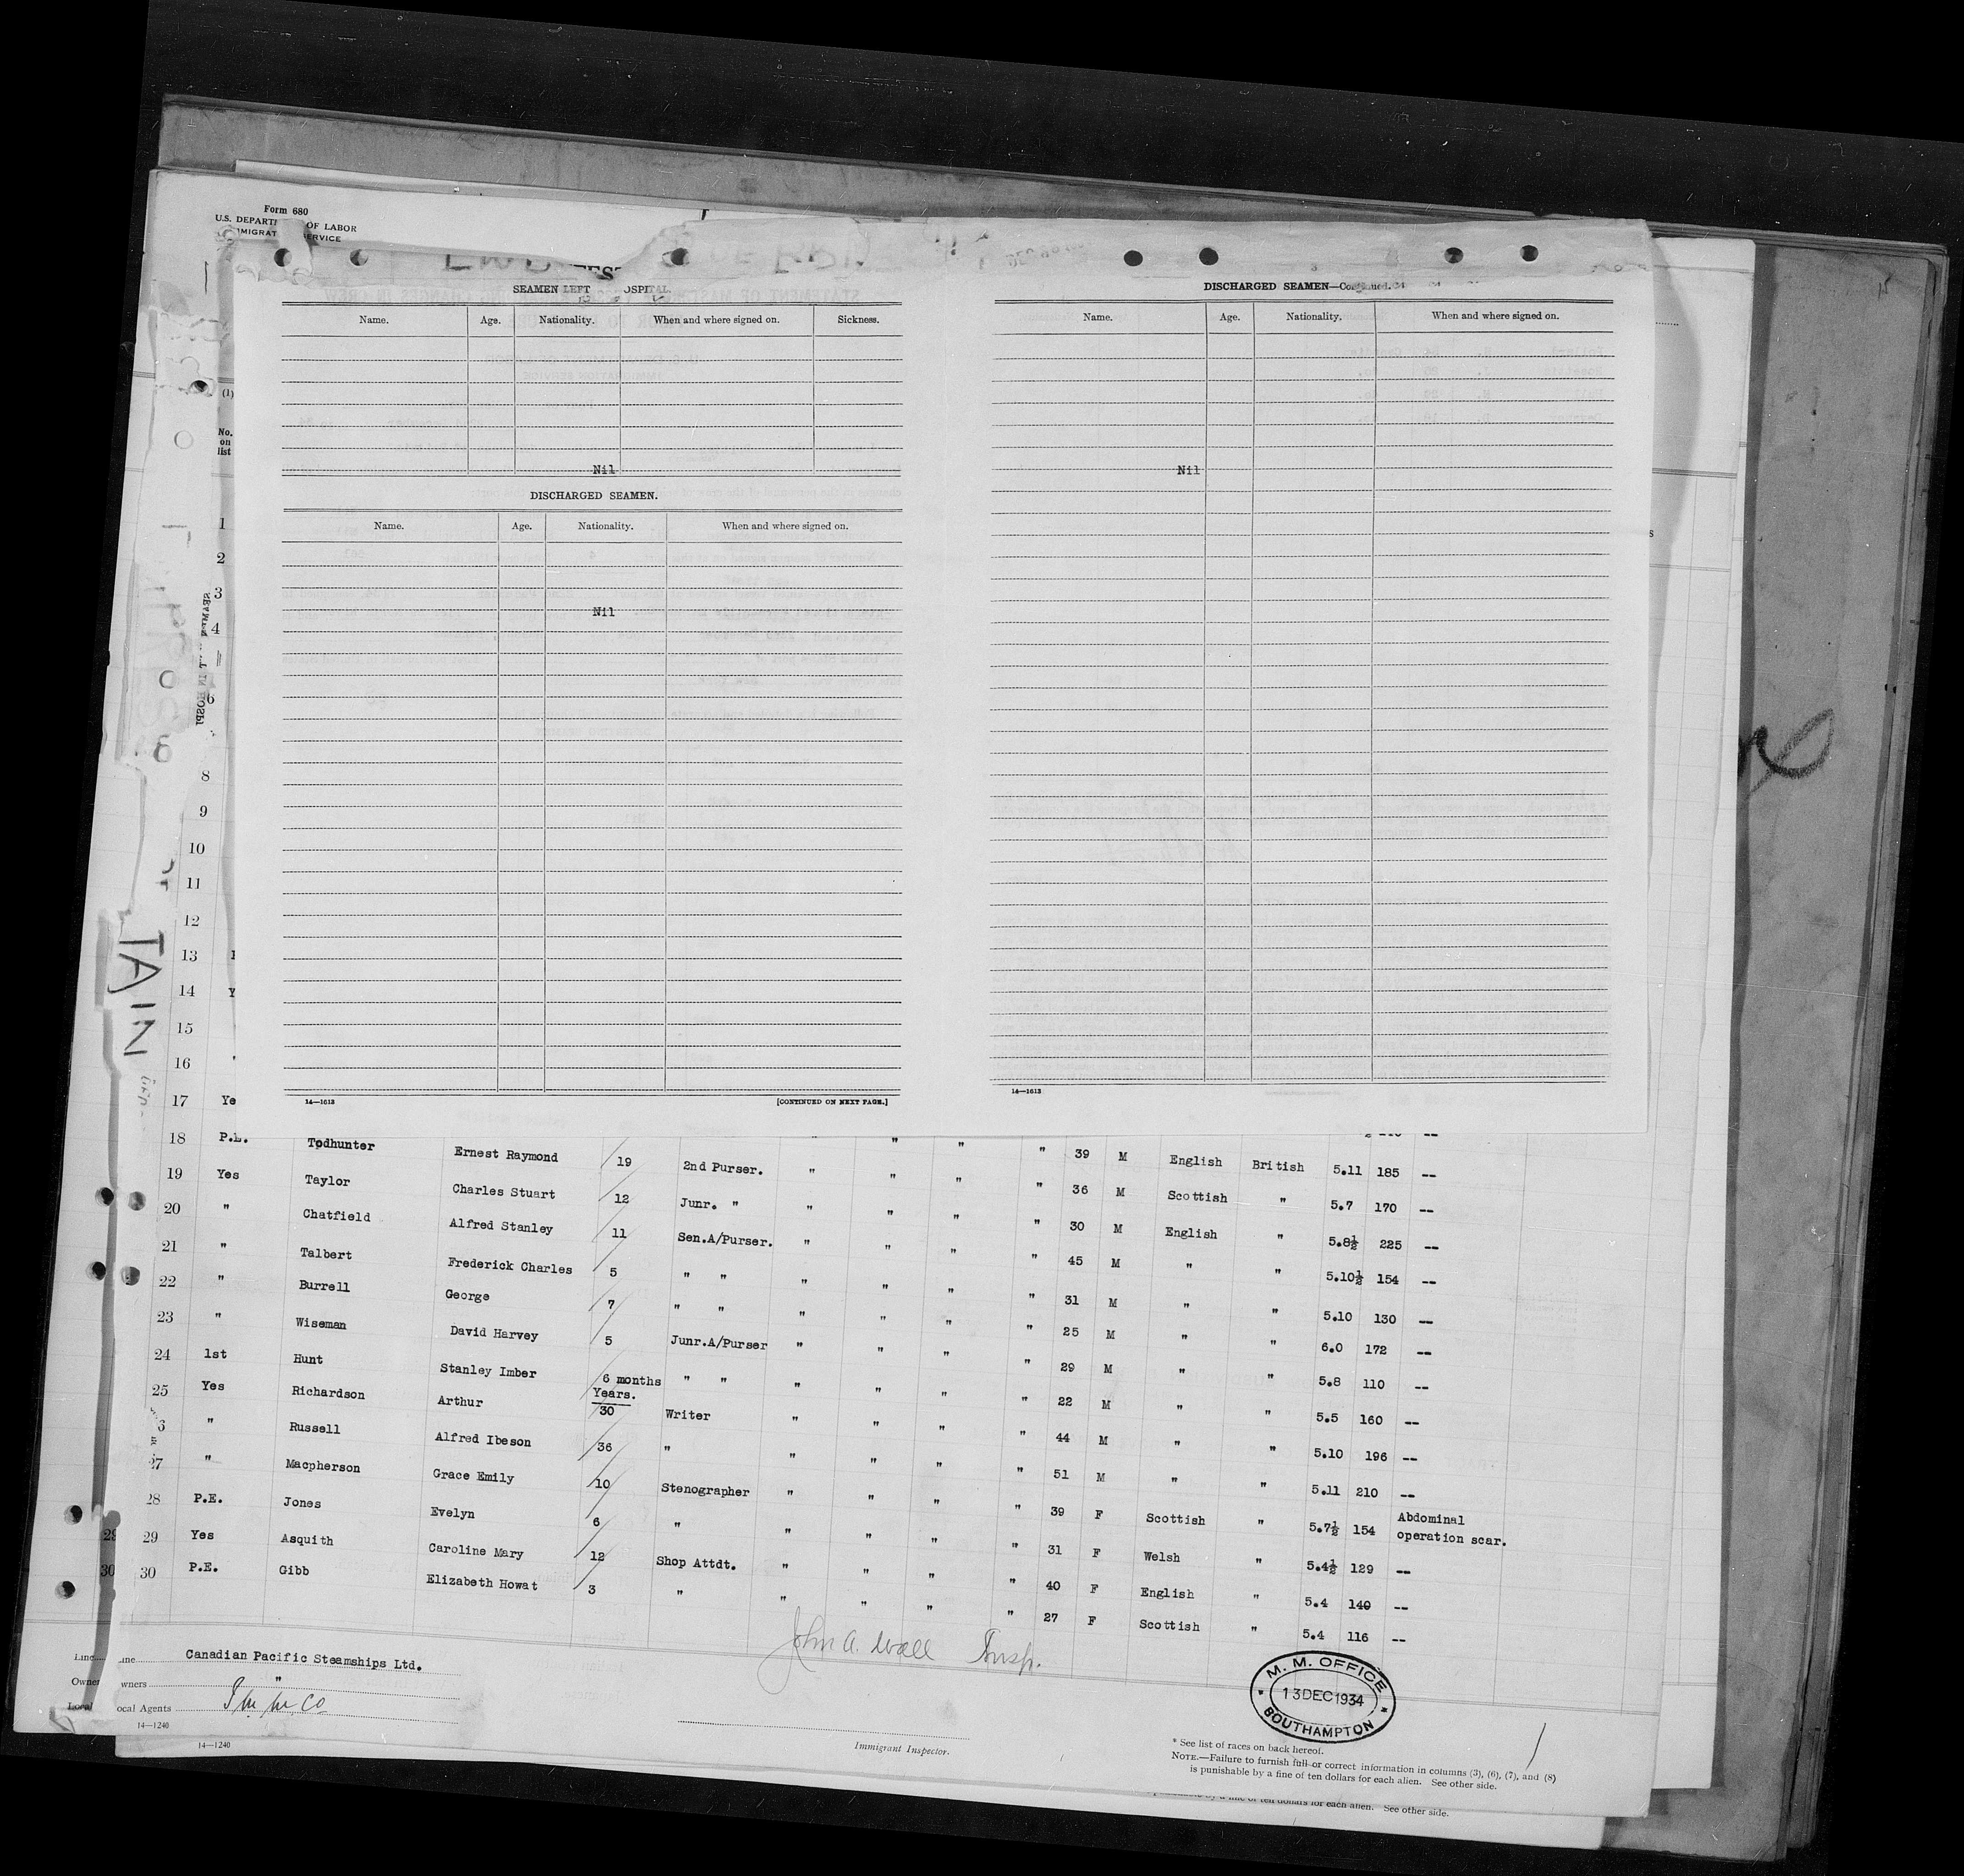 Form 680
U.S. DEPARTMENT OF LABOR
IMMIGRATION SERVICE
SEAMEN LEFT HOSPITAL.
Name. Age. Nationality. When and where signed on. Sickness.
Nil
DISCHARGED SEAMEN.
Name. Age. Nationality. When and where signed on.
Nil
14—1613 [CONTINUED ON NEXT PAGE.]
DISCHARGED SEAMEN—Continued.
Name. Age. Nationality. When and where signed on.
Nil
14—1613
(1)
No. on list
1
2
3
4
6
8
9
10
11
12
13
14 Y
15
16
17 Ye " " " 39 M English British 5.11 185 --
18 P.E. Todhunter Ernest Raymond 19 2nd Purser. " " " " 36 M Scottish " 5.7 170 --
19 Yes Taylor Charles Stuart 12 Junr. " " " " " 30 M English " 5.8½ 225 --
20 " Chatfield Alfred Stanley 11 Sen.A/Purser. " " " " 45 M " " 5.10½ 154 --
21 " Talbert Frederick Charles 5 " " " " " " 31 M " " 5.10 130 --
22 " Burrell George 7 " " " " " " 25 M " " 6.0 172 --
23 " Wiseman David Harvey 5 Junr.A/Purser " " " " 29 M " " 5.8 110 --
24 1st Hunt Stanley Imber 6 months " " " " " " 22 M " " 5.5 160 --
Years.
25 Yes Richardson Arthur 30 Writer " " " " 44 M " " 5.10 196 --
6 " Russell Alfred Ibeson 36 " " " " " 51 M " " 5.11 210 --
27 " Macpherson Grace Emily 10 Stenographer " " " " 39 F Scottish " 5.7½ 154 Abdominal operation scar.
28 P.E. Jones Evelyn 6 " " " " " 31 F Welsh " 5.4½ 129 --
29 Yes Asquith Caroline Mary 12 Shop Attdt. " " " " 40 F English " 5.4 140 --
30 P.E. Gibb Elizabeth Howat 3 " " " " " 27 F Scottish " 5.4 116 --
29
30
TAIN
John A. Wall Insp.
Line Canadian Pacific Steamships Ltd.
Owners "
Local Agents
14—1240
14—1240
Immigrant Inspector.
M. M. OFFICE
13 DEC 1934
SOUTHAMPTON
* See list of races on back hereof.
NOTE.—Failure to furnish full or correct information in columns (3), (6), (7), and (8)
is punishable by a fine of ten dollars for each alien. See other side.
of ten dollars for each alien. See other side.